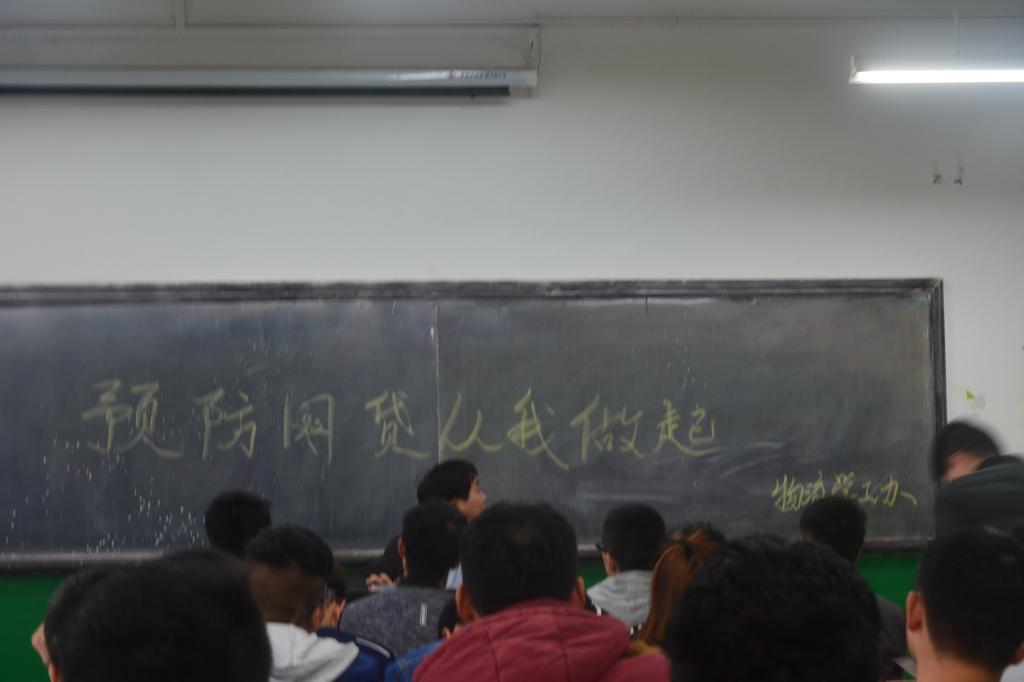 预防网贷从我做起
物流学工办